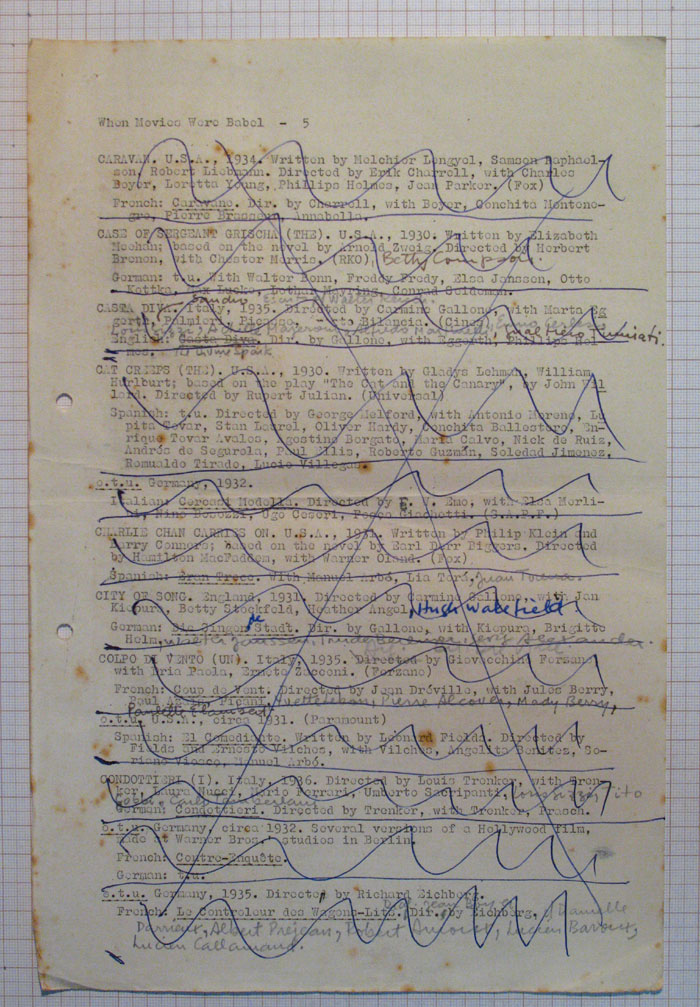 When Movies Were Babel - 5
CARAVAN. U.S.A., 1934. Written by Melchior Lengyel, Samson Raphael-
son, Robert Liebmann. Directed by Erik Charrell, with Charles
Boyer, Loretta Young, Phillips Holmes, Jean Parker. (Fox)
French: Caravane. Dir. by Charrell, with Boyer, Conchita Monteno-
gro, Pierre Brasseur, Annabella.
CASE OF SERGEANT GRISCHA (THE). U.S.A., 1930. Written by Elizabeth
Meehan; based on the novel by Arnold Zweig. Directed by Herbert
Brenon, with Chester Morris, (RKO), Betty Compson.
German: t.u. With Walter Bonn, Freddy Frody, Elsa Janssen, Otto
Kottka, Lucke, Lothar Mayring, Conrad Seideman.
Sandro
CASTA DIVA. Italy, 1935. Directed by Carmine Gallone, with Marta Eg
gerth, Palmieri,
English: Casta Diva. Dir. by Gallone, with Eggerth, Phillips Hol-
mes. The Divine Spark
CAT CREEPS (THE). U.S.A., 1930. Written by Gladys Lehman, William
Hurlburt; based on the play "The Cat and the Canary", by John Wil
lard. Directed by Rupert Julian. (Universal)
Spanish: t.u. Directed by George Melford, with Antonio Moreno, Lu
pita Tovar, Stan Laurel, Oliver Hardy, Conchita Ballestero, En-
rique Tovar Avalos, Agostino Borgato, Maria Calvo, Nick de Ruiz,
Andrés de Segurola, Paul Ellis, Roberto Guzmán, Soledad Jimenez,
Romualdo Tirado, Lucio Villegas.
o.t.u. Germany, 1932.
Italian: Cercasi Modella. Directed by E. W. Emo, with Elsa Merli-
ni, Nino Besozzi, Ugo Ceseri, (S.A.P.F.)
CHARLIE CHAN CARRIES ON. U.S.A., 1931. Written by Philip Klein and
Barry Conners; based on the novel by Earl Derr Biggers. Directed
by Hamilton MacFadden, with Warner Oland. (Fox)
Spanish: Eran Trece. With Manuel Arbó, Lia Torá, Juan Torena.
CITY OF SONG. England, 1931. Directed by Carmine Gallone, with Jan
Kiepura, Betty Stockfeld, Heather Angel, Hugh Wakefield.
de
German: Die Singen Stadt. Dir. by Gallone, with Kiepura, Brigitte
Helm, Walter Janssen, Georg Alexander.
COLPO DI VENTO (UN). Italy, 1935. Directed by Giovacchin Forzano
with Dria Paola, Ermete Zacconi. (Forzano)
French: Coup de Vent. Directed by Jean Dréville, with Jules Berry,
Pierre Alcover, Mady Berry,
Paulette Elambert
o.t.u. U.S.A., circa 1931. (Paramount)
Spanish: El Comediante. Written by Leonard Fields. Directed by
Fields and Ernesto Vilches, with Vilches, Angelita Benitez, So-
riano Viosca, Manuel Arbó.
CONDOTTIERI (I). Italy, 1936. Directed by Louis Trenker, with Tren-
ker, Laura Nucci, Mario Ferrari, Umberto Sacripanti, Tito
German: Condottieri. Directed by Trenker, with Trenker, Frasch.
o.t.u. Germany, circa 1932. Several versions of a Hollywood film,
made at Warner Bros. studios in Berlin.
French: Contre-Enquête.
German: t.u.
o.t.u. Germany, 1935. Directed by Richard Eichberg.
French: Le Controleur des Wagons-Lits. Dir. by Eichberg, Danielle
Darrieux, Albert Prejean, Robert Arnoux, Lucien Baroux,
Lucien Callamand.